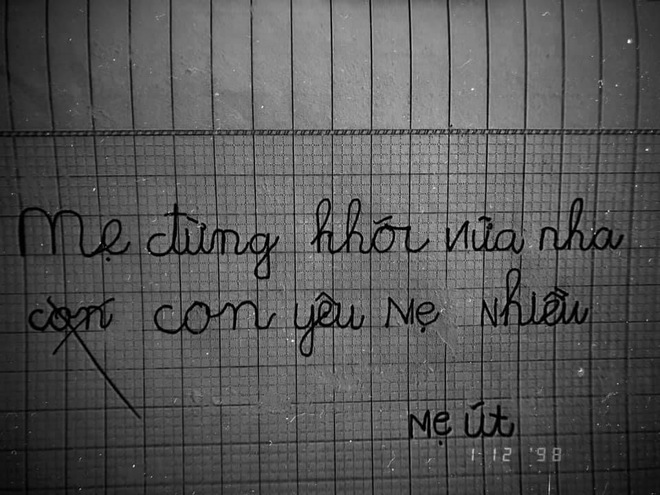 Mẹ đừng khór nữa nha
con con yêu Mẹ Nhiều
Mẹ Út
1 12 '98